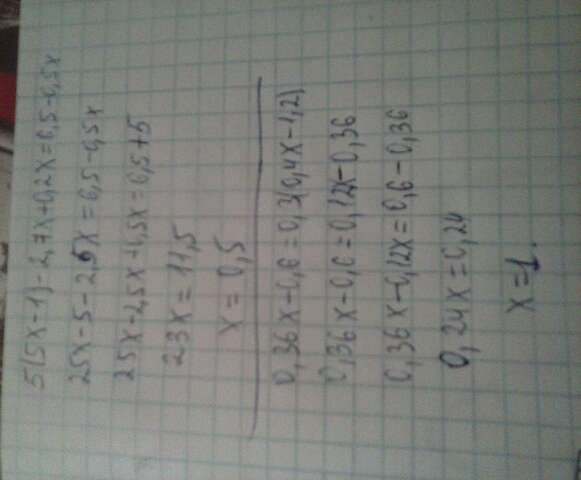 5(5x-1)-2,7x+0,2x=6,5-0,5x
25x-5-2,5x=6,5-0,5x
25x-2,5x+0,5x=6,5+5
23x=11,5
x=0,5
0,36x-0,6=0,3(0,4x-1,2)
0,36x-0,6=0,12x-0,36
0,36x-0,12x=0,6-0,36
0,24x=0,24
x=1.